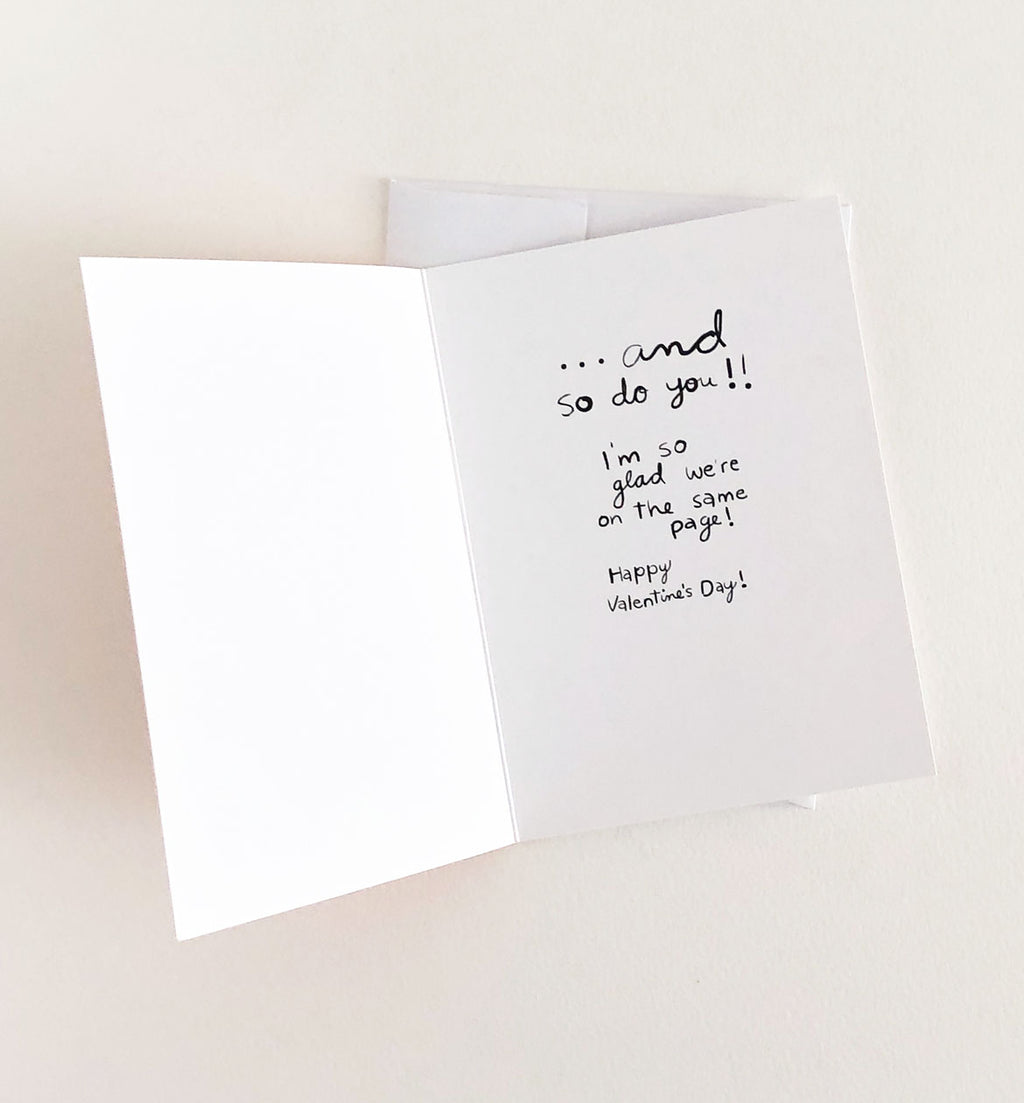 ... and
so do you!!
I'm so
glad we're
on the same
page!
Happy
Valentine's Day!